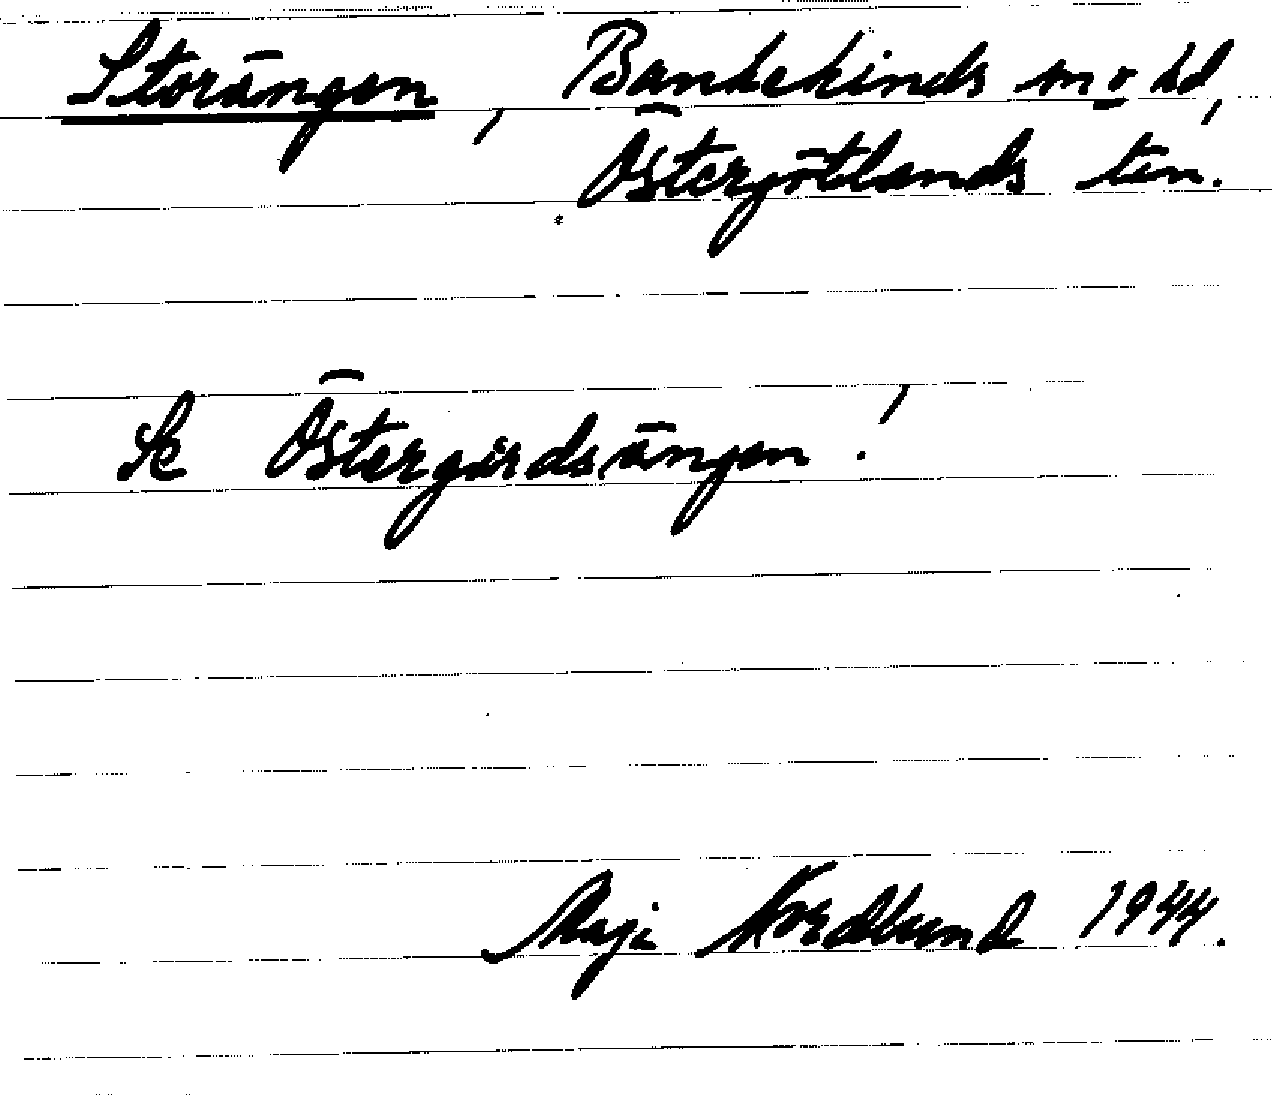 Storängen, Bankekinds sn o hd,
Östergötlands län.
Se Östergårdsängen!
Maji Nordlund 1944.